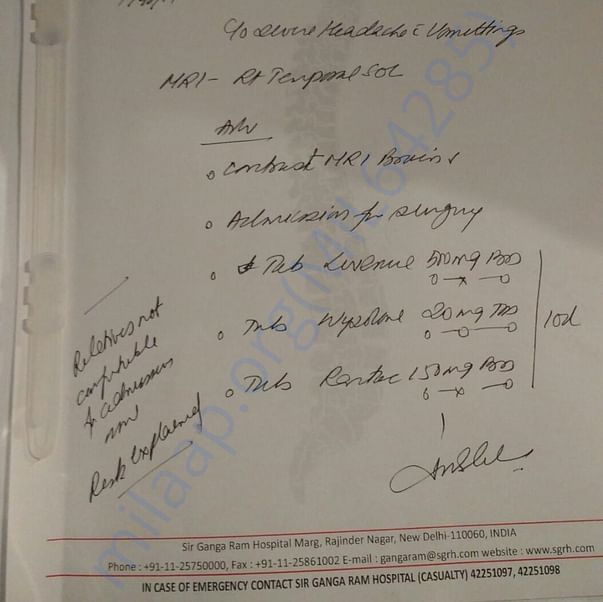 c/o severe Headache c̄ Vomittings
MRI - Rt Temporal SOL
Adv
Contrast MRI Brain
Admission for surgery
Tab Levenue 500mg BD
o-x-o
Tab Wysolone 20mg TDS
o-o-o
Tab Rantac 150mg BD
o-x-o
10d
Relatives not
admission
Risk Explained
milaap.org(MIL642851)
Sir Ganga Ram Hospital Marg, Rajinder Nagar, New Delhi-110060, INDIA
Phone : +91-11-25750000, Fax : +91-11-25861002 E-mail : gangaram@sgrh.com website : www.sgrh.com
IN CASE OF EMERGENCY CONTACT SIR GANGA RAM HOSPITAL (CASUALTY) 42251097, 42251098